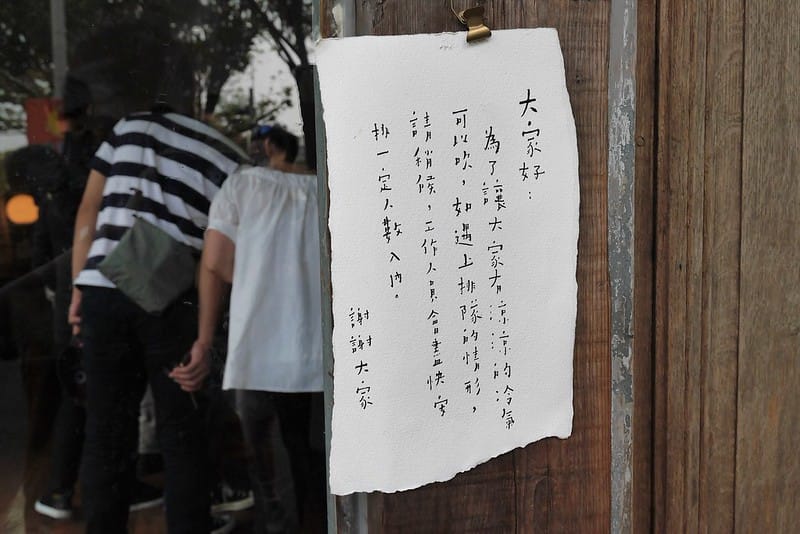 大家好：
為了讓大家有涼涼的冷氣
可以吹，如遇上排隊的情形，
請稍候，工作人員會盡快安
排一定人數入內。
謝謝大家